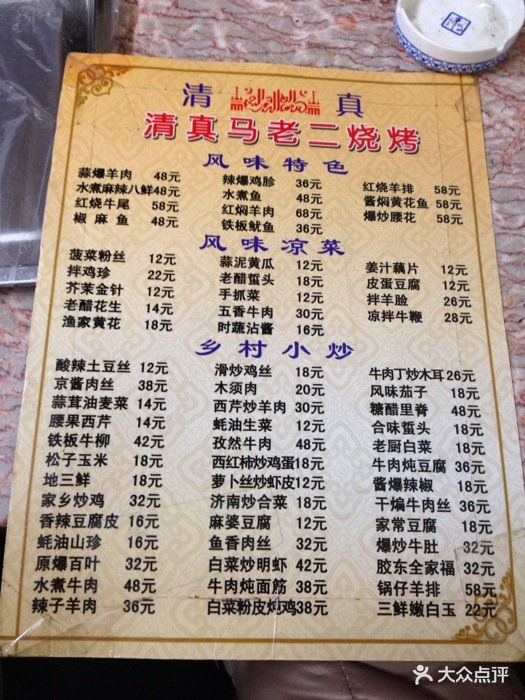 清 真
清真马老二烧烤
风味特色
蒜爆羊肉 48元 辣爆鸡胗 36元 红烧羊排 58元
水煮麻辣八鲜48元 水煮鱼 48元 酱焖黄花鱼 58元
红烧牛尾 58元 红焖羊肉 68元 爆炒腰花 58元
椒麻鱼 48元 铁板鱿鱼 36元
风味凉菜
菠菜粉丝 12元 蒜泥黄瓜 12元 姜汁藕片 12元
拌鸡珍 22元 老醋蜇头 18元 皮蛋豆腐 12元
芥茉金针 12元 手抓菜 12元 拌羊脸 26元
老醋花生 14元 五香牛肉 30元 凉拌牛鞭 28元
渔家黄花 18元 时蔬沾酱 16元
乡村小炒
酸辣土豆丝 12元 滑炒鸡丝 18元 牛肉丁炒木耳26元
京酱肉丝 38元 木须肉 20元 风味茄子 18元
蒜茸油麦菜 14元 西芹炒羊肉 30元 糖醋里脊 48元
腰果西芹 14元 蚝油生菜 12元 合味蜇头 18元
铁板牛柳 42元 孜然牛肉 48元 老厨白菜 18元
松子玉米 18元 西红柿炒鸡蛋18元 牛肉炖豆腐 36元
地三鲜 18元 萝卜丝炒虾皮12元 酱爆辣椒 18元
家乡炒鸡 32元 济南炒合菜 18元 干煸牛肉丝 36元
香辣豆腐皮 16元 麻婆豆腐 12元 家常豆腐 18元
蚝油山珍 16元 鱼香肉丝 32元 爆炒牛肚 32元
原爆百叶 32元 白菜炒明虾 42元 胶东全家福 32元
水煮牛肉 48元 牛肉炖面筋 38元 锅仔羊排 58元
辣子羊肉 36元 白菜粉皮炖鸡38元 三鲜嫩白玉 22元
大众点评